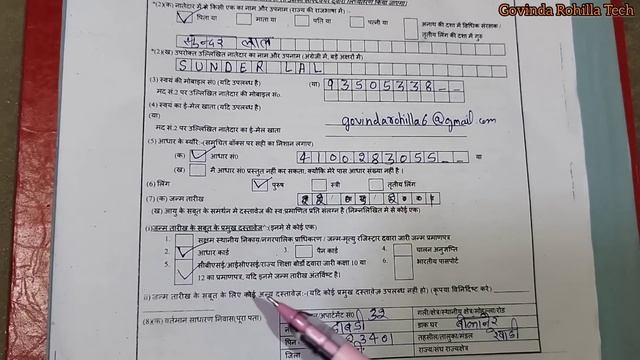 Govinda Rohilla Tech
*(2)(क) नातेदारों में से किसी एक का नाम और उपनाम (राज्य की राजभाषा में) :-
पिता या माता या पति या पत्नी या अनाथ की दशा में विधिक संरक्षक/
तृतीय लिंग की दशा में गुरु
सुन्दर लाल
*(2)(ख) उपरोक्त उल्लिखित नातेदार का नाम और उपनाम (अंग्रेजी में, बड़े अक्षरों में):-
SUNDER LAL
(3) स्वयं की मोबाइल सं0 (यदि उपलब्ध है) (या) 93505338--
मद सं.2 पर उल्लिखित नातेदार की मोबाइल सं0.
(4) स्वयं का ई-मेल खाता (यदि उपलब्ध है)
(या) govindarohilla6@gmail.com
मद सं.2 पर उल्लिखित नातेदार का ई-मेल खाता
(5) आधार के ब्यौरे:-(समुचित बॉक्स पर सही का निशान लगाए)
(क) आधार सं0 4100283055-- या
(ख) मैं आधार सं0 प्रस्तुत नहीं कर सकता, क्योंकि मेरे पास आधार संख्या नहीं है।
(6) लिंग पुरुष स्त्री तृतीय लिंग
(7) (क) जन्म तारीख
(ख) आयु के सबूत के समर्थन में दस्तावेज की स्व प्रमाणित प्रति संलग्न है (निम्नलिखित में से कोई एक)
(i) जन्म तारीख के सबूत के प्रमुख दस्तावेज :(इनमें से कोई एक)
1. सक्षम स्थानीय निकाय/नगरपालिक प्राधिकरण /जन्म-मृत्यु रजिस्ट्रार द्वारा जारी जन्म प्रमाणपत्र
2. आधार कार्ड 3. पैन कार्ड 4. चालन अनुज्ञप्ति
5. सीबीएसई/आईसीएसई/राज्य शिक्षा बोर्डों द्वारा जारी कक्षा 10 या 6. भारतीय पासपोर्ट
12 का प्रमाणपत्र, यदि इनमें जन्म तारीख अंतर्विष्ट है।
ii) जन्म तारीख के सबूत के लिए कोई अन्य दस्तावेज:-(यदि कोई प्रमुख दस्तावेज उपलब्ध नहीं हो) (कृपया विनिर्दिष्ट करें)
(8)(क) वर्तमान साधारण निवास(पूरा पता) अपार्टमेंट सं0 32 गली/क्षेत्र/स्थानीय क्षेत्र/मोहल्ला/रोड
डाक घर
पिन 23401 तहसील/तालुका/मंडल रेवाड़ी
जिला राज्य/संघ राज्यक्षेत्र